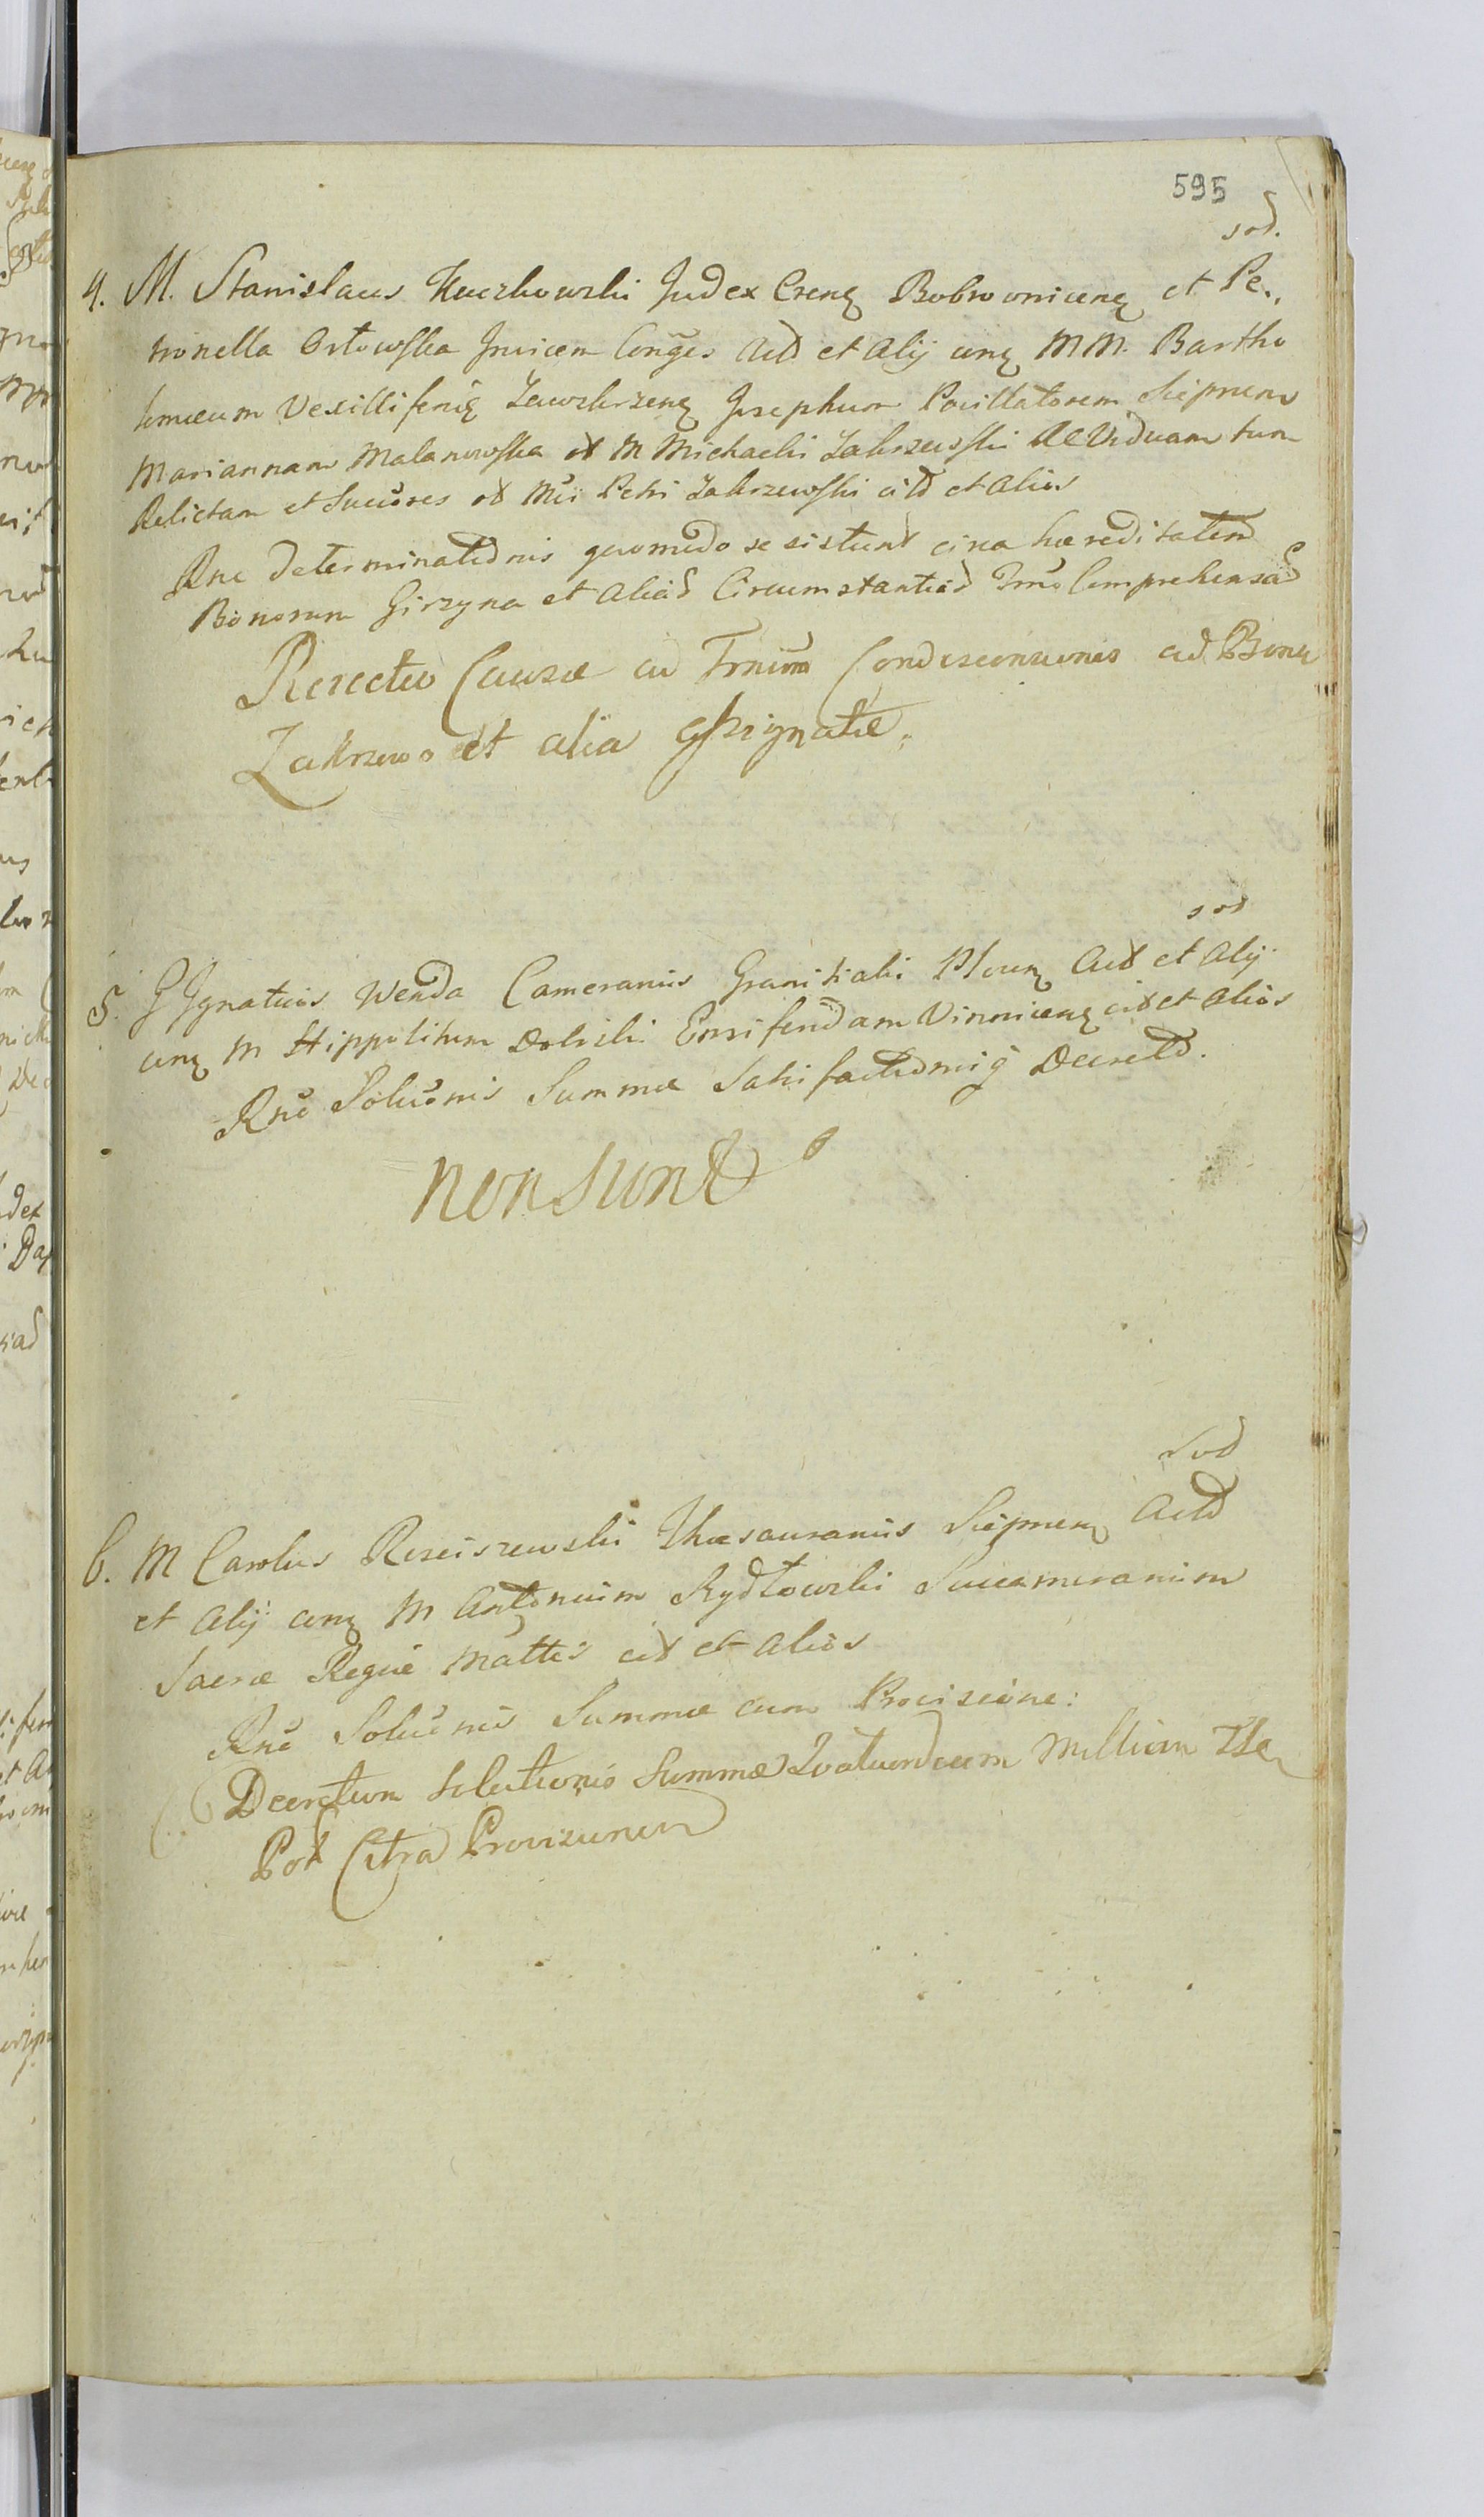 595
sod.
4. M. Stanislaus Kuczkowski Judex Crenę Bobrowniceną et Pe.,
tronella Ortowska Invicem Conges Actd et Alij cum MM. Bartho
lomæum Vexilliferię Zawskrzenę Josephum Pocillatorem Sieprcens
Mariannam Malanowska ol M Michaelis Zakrzewski Viduam tum
Relictam et Succres ol Mci Petri Zakrzewski citd et Alios
Rne determinationis quomodo se sistunt circa hæreditatem
Bonorum Girzyna et Alias Circumstantias Tmo Comprehensas
Rejectio Causæ ad Trnum Condescensionis ad Bona
Zakrzewo et alia assignatæ.
sod
5. G Ignatius Wenda Camerarius Granitialis Plocen Act et Alij
cum M Hippolitum Ensiferidam Vinnicens cit et Alios
Rne Soluonis Summæ Satisfactionis Decreto.
non sunt
sod
6. M Carolus Rosciszewski Thesaurarius Sieprcen Actd
et Alij cum M Antonium Rydtowski Succamerarium
Sacræ Regiæ Mattis cit et Alios
Rne Soluonis Summæ cum Provisione:
Decretum Solutionis Summæ Quatuordecem Millium
Pol Citra Provisionem